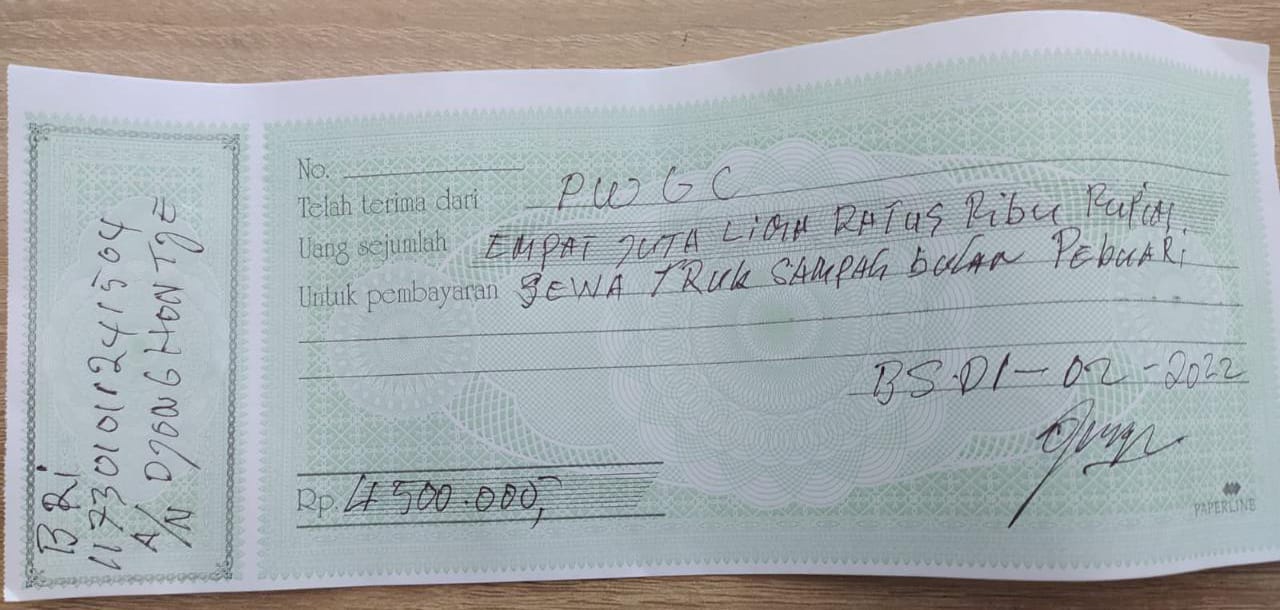 BRi
117301011241504
A/N DJONG HON TJE
No.
Telah terima dari PWGC
Uang sejumlah EMPAT JUTA LIMA RATUS Ribu Rupiai
Untuk pembayaran SEWA TRUK SAMPAH bulan PEbuARi
BS.01-02-2022
Rp. 4 500.000,-
PAPERLINE